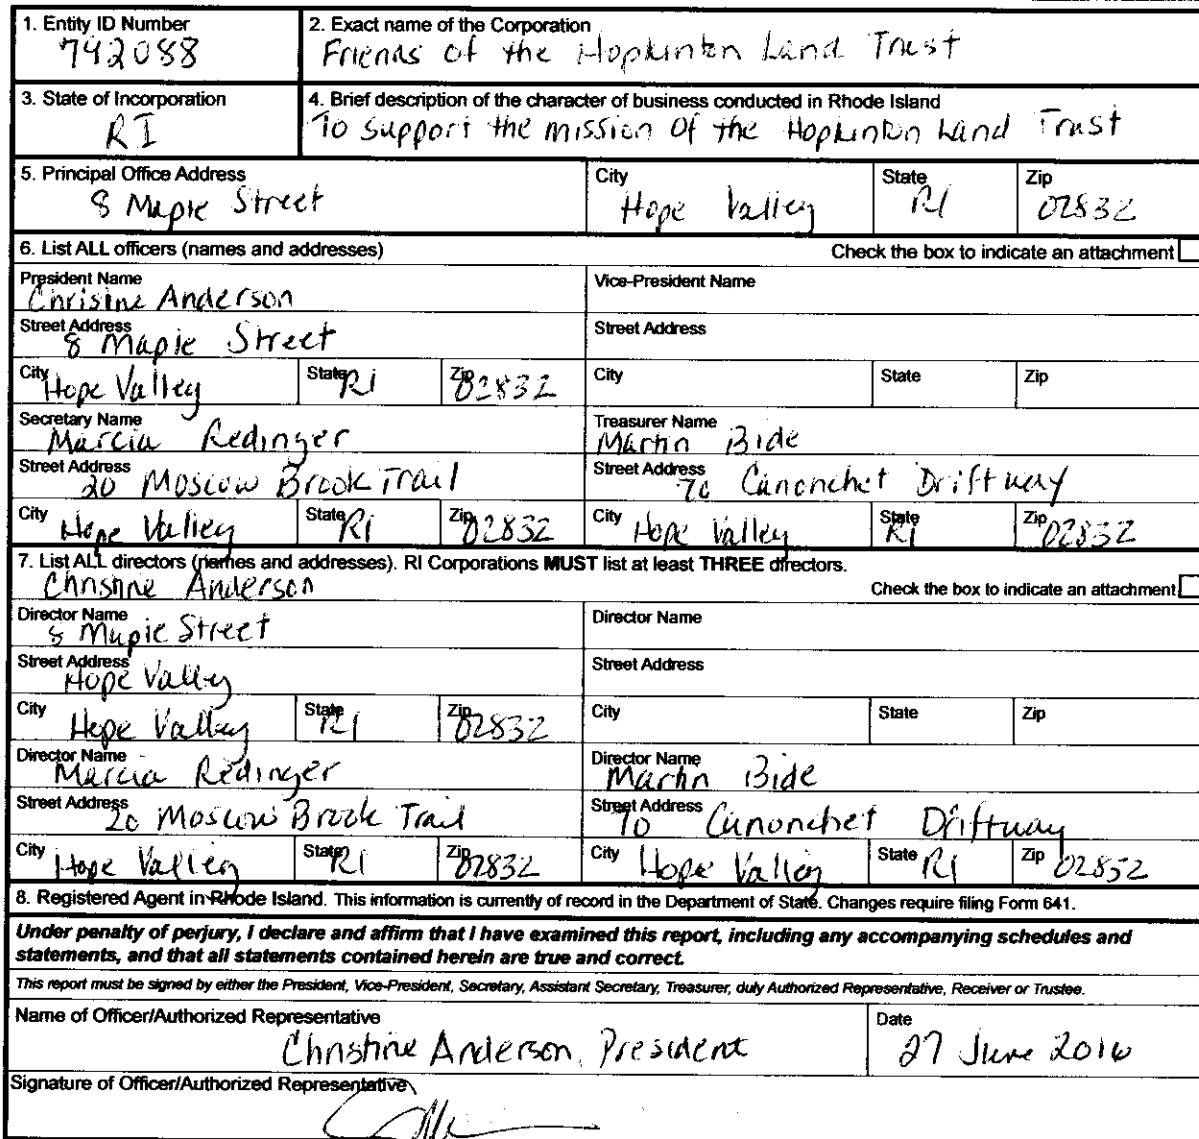 1. Entity ID Number
742088
2. Exact name of the Corporation
Friends of the Hopkinton Land Trust
3. State of Incorporation
RI
4. Brief description of the character of business conducted in Rhode Island
To support the mission of the Hopkinton Land Trust
5. Principal Office Address
8 Maple Street
City
Hope Valley
State
RI
Zip
02832
6. List ALL officers (names and addresses)
Check the box to indicate an attachment
President Name
Christine Anderson
Vice-President Name
Street Address
8 Maple Street
Street Address
City Hope Valley
State RI
Zip 02832
City
State
Zip
Secretary Name
Marcia Redinger
Treasurer Name
Martin Bide
Street Address
20 Moscow Brook Trail
Street Address
70 Canonchet Driftway
City Hope Valley
State RI
Zip 02832
City Hope Valley
State RI
Zip 02832
7. List ALL directors (names and addresses). RI Corporations MUST list at least THREE directors.
Christine Anderson
Check the box to indicate an attachment
Director Name
8 Maple Street
Director Name
Street Address
Hope Valley
Street Address
City Hope Valley
State RI
Zip 02832
City
State
Zip
Director Name
Marcia Redinger
Director Name
Martin Bide
Street Address
20 Moscow Brook Trail
Street Address
70 Canonchet Driftway
City Hope Valley
State RI
Zip 02832
City Hope Valley
State RI
Zip 02832
8. Registered Agent in Rhode Island. This information is currently of record in the Department of State. Changes require filing Form 641.
Under penalty of perjury, I declare and affirm that I have examined this report, including any accompanying schedules and
statements, and that all statements contained herein are true and correct.
This report must be signed by either the President, Vice-President, Secretary, Assistant Secretary, Treasurer, duly Authorized Representative, Receiver or Trustee.
Name of Officer/Authorized Representative
Christine Anderson, President
Date
27 June 2016
Signature of Officer/Authorized Representative